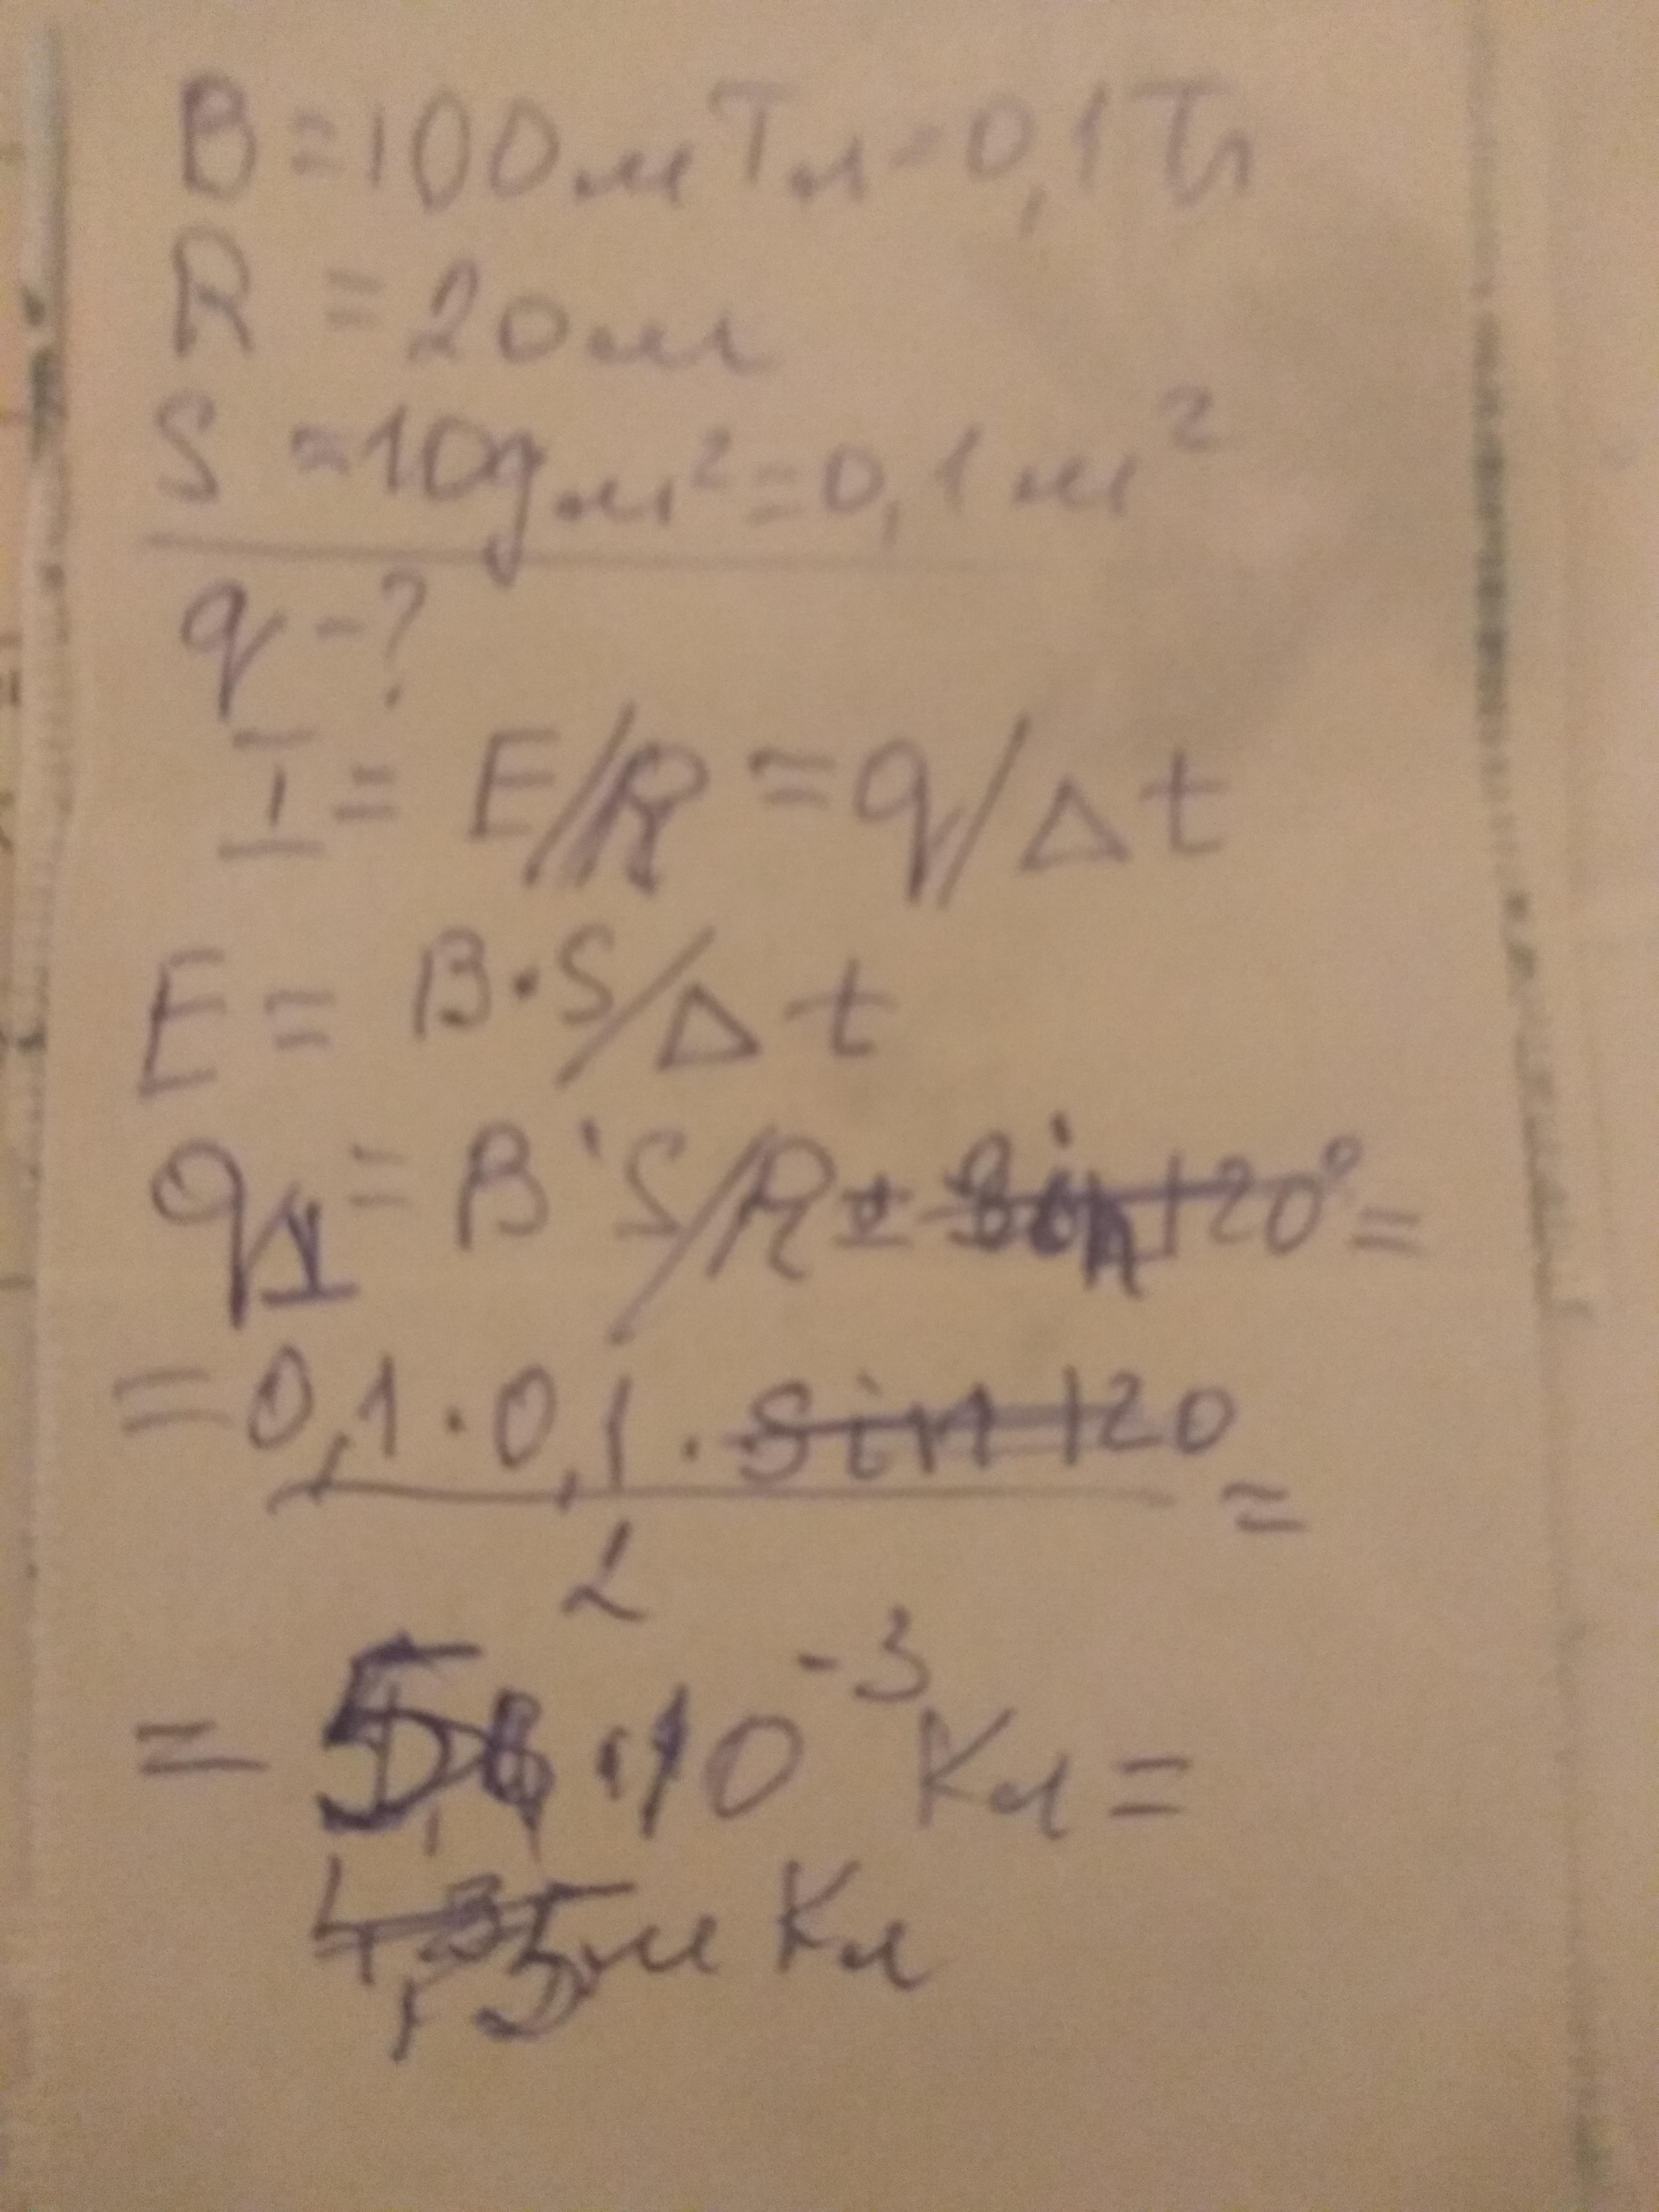 B=100мТл=0,1Тл
R=2Ом
S=10дм²=0,1м²
q-?
I=E/R=q/Δt
E=B·S/Δt
q1=B·S/R± sin120°=
=0,1·0,1·sin120
2
=
=5·10⁻³Кл=
5мКл